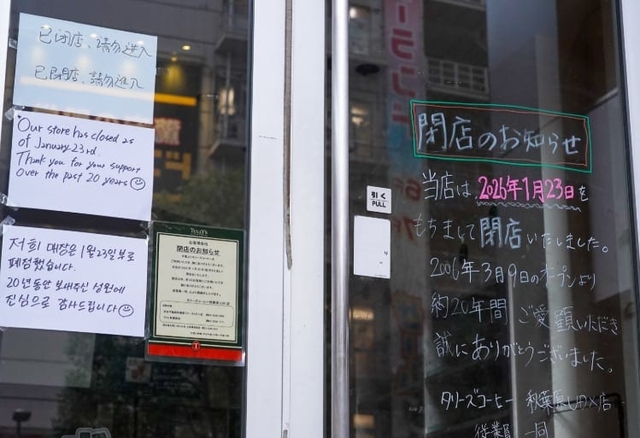 已閉店、請勿進入
已閉店、請勿進入
Our store has closed as
of January 23rd.
Thank you for your support
over the past 20 years
저희 매장은 1월 23일부로
폐점했습니다.
20년 동안 보내주신 성원에
진심으로 감사드립니다
TULLY'S
閉店のお知らせ
引く
PULL
閉店のお知らせ
当店は、2026年1月23日を
もちまして閉店いたしました。
2006年3月9日のオープンより
約20年間 ご愛顧いただき
誠にありがとうございました。
タリーズコーヒー 秋葉原UDX店
従業員一同